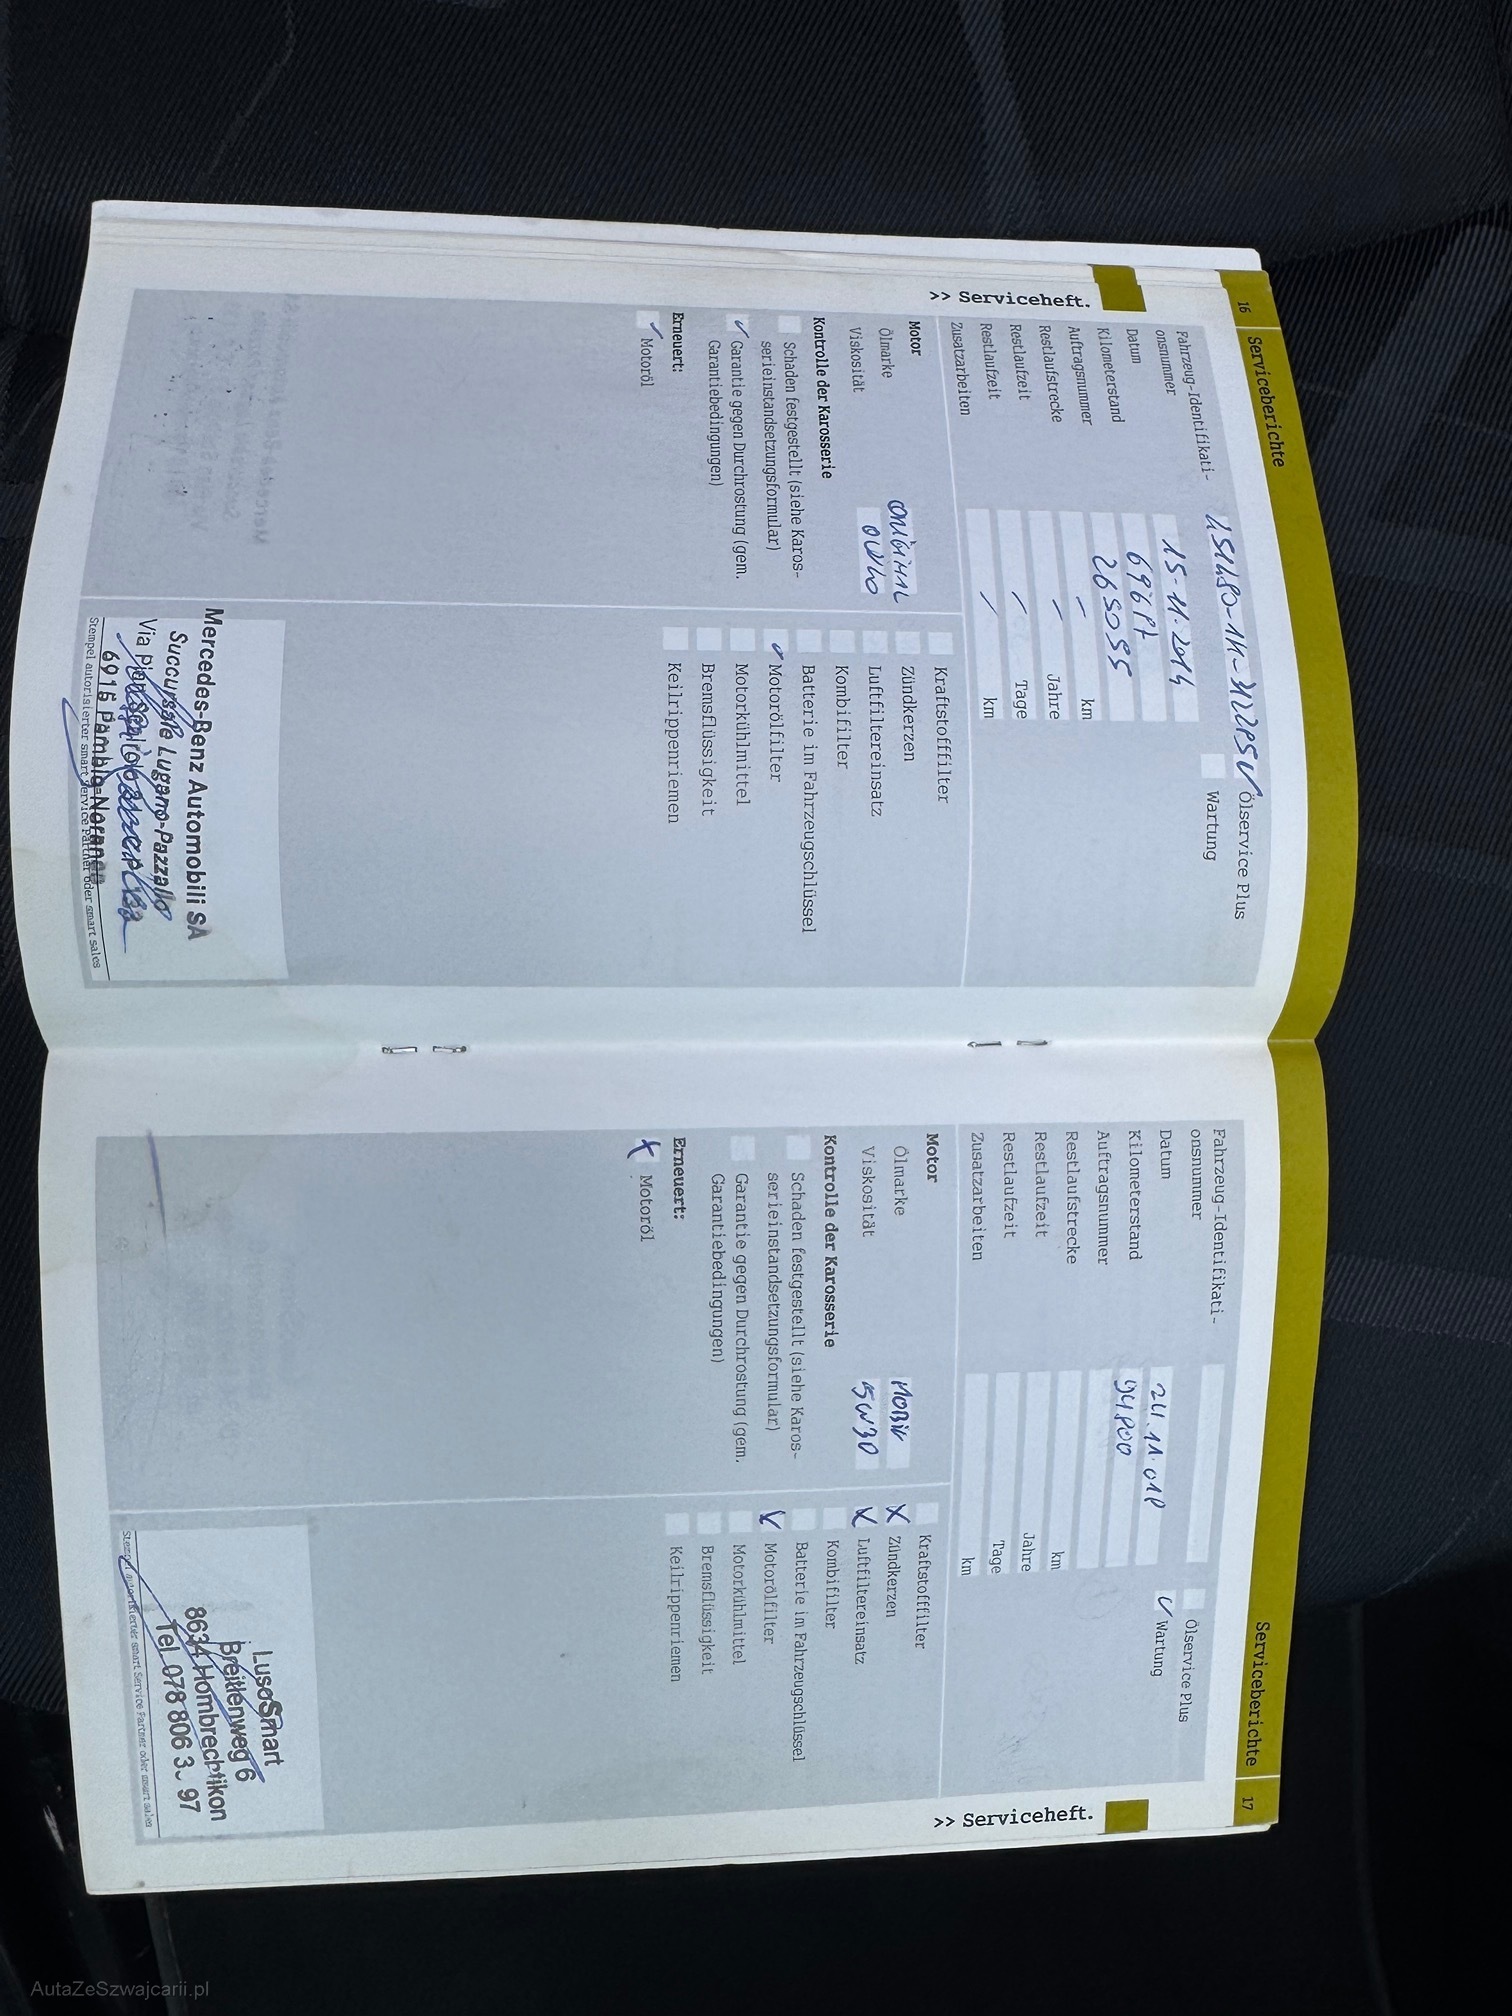 16 Serviceberichte
>> Serviceheft.
Fahrzeug-Identifikati-
onsnummer
Datum 15-11-2014
Kilometerstand
Auftragsnummer 265055
Restlaufstrecke - km
Restlaufzeit - Jahre
Restlaufzeit - Tage
Zusatzarbeiten - km
Ölservice Plus
Wartung
Motor
Ölmarke ORIGINAL
Viskosität 0W40
Kontrolle der Karosserie
Schaden festgestellt (siehe Karos-
serieinstandsetzungsformular)
Garantie gegen Durchrostung (gem.
Garantiebedingungen)
Erneuert:
Motoröl
Kraftstofffilter
Zündkerzen
Luftfiltereinsatz
Kombifilter
Batterie im Fahrzeugschlüssel
Motorölfilter
Motorkühlmittel
Bremsflüssigkeit
Keilrippenriemen
Mercedes-Benz Automobili SA
Succursale Lugano-Pazzallo
Via
6915 Pambio-Noranco
Stempel autorisierter smart Service Partner oder smart sales
Serviceberichte 17
>> Serviceheft.
Fahrzeug-Identifikati-
onsnummer
Datum 24.11.018
Kilometerstand 94800
Auftragsnummer
Restlaufstrecke km
Restlaufzeit Jahre
Restlaufzeit Tage
Zusatzarbeiten km
Ölservice Plus
Wartung
Motor
Ölmarke MOBIL
Viskosität 5W30
Kontrolle der Karosserie
Schaden festgestellt (siehe Karos-
serieinstandsetzungsformular)
Garantie gegen Durchrostung (gem.
Garantiebedingungen)
Erneuert:
Motoröl
Kraftstofffilter
Zündkerzen
Luftfiltereinsatz
Kombifilter
Batterie im Fahrzeugschlüssel
Motorölfilter
Motorkühlmittel
Bremsflüssigkeit
Keilrippenriemen
LusoSmart
Breitlenweg 6
8634 Hombrechtikon
Tel. 078 806 97
Stempel autorisierter smart Service Partner oder smart sales
AutaZeSzwajcarii.pl